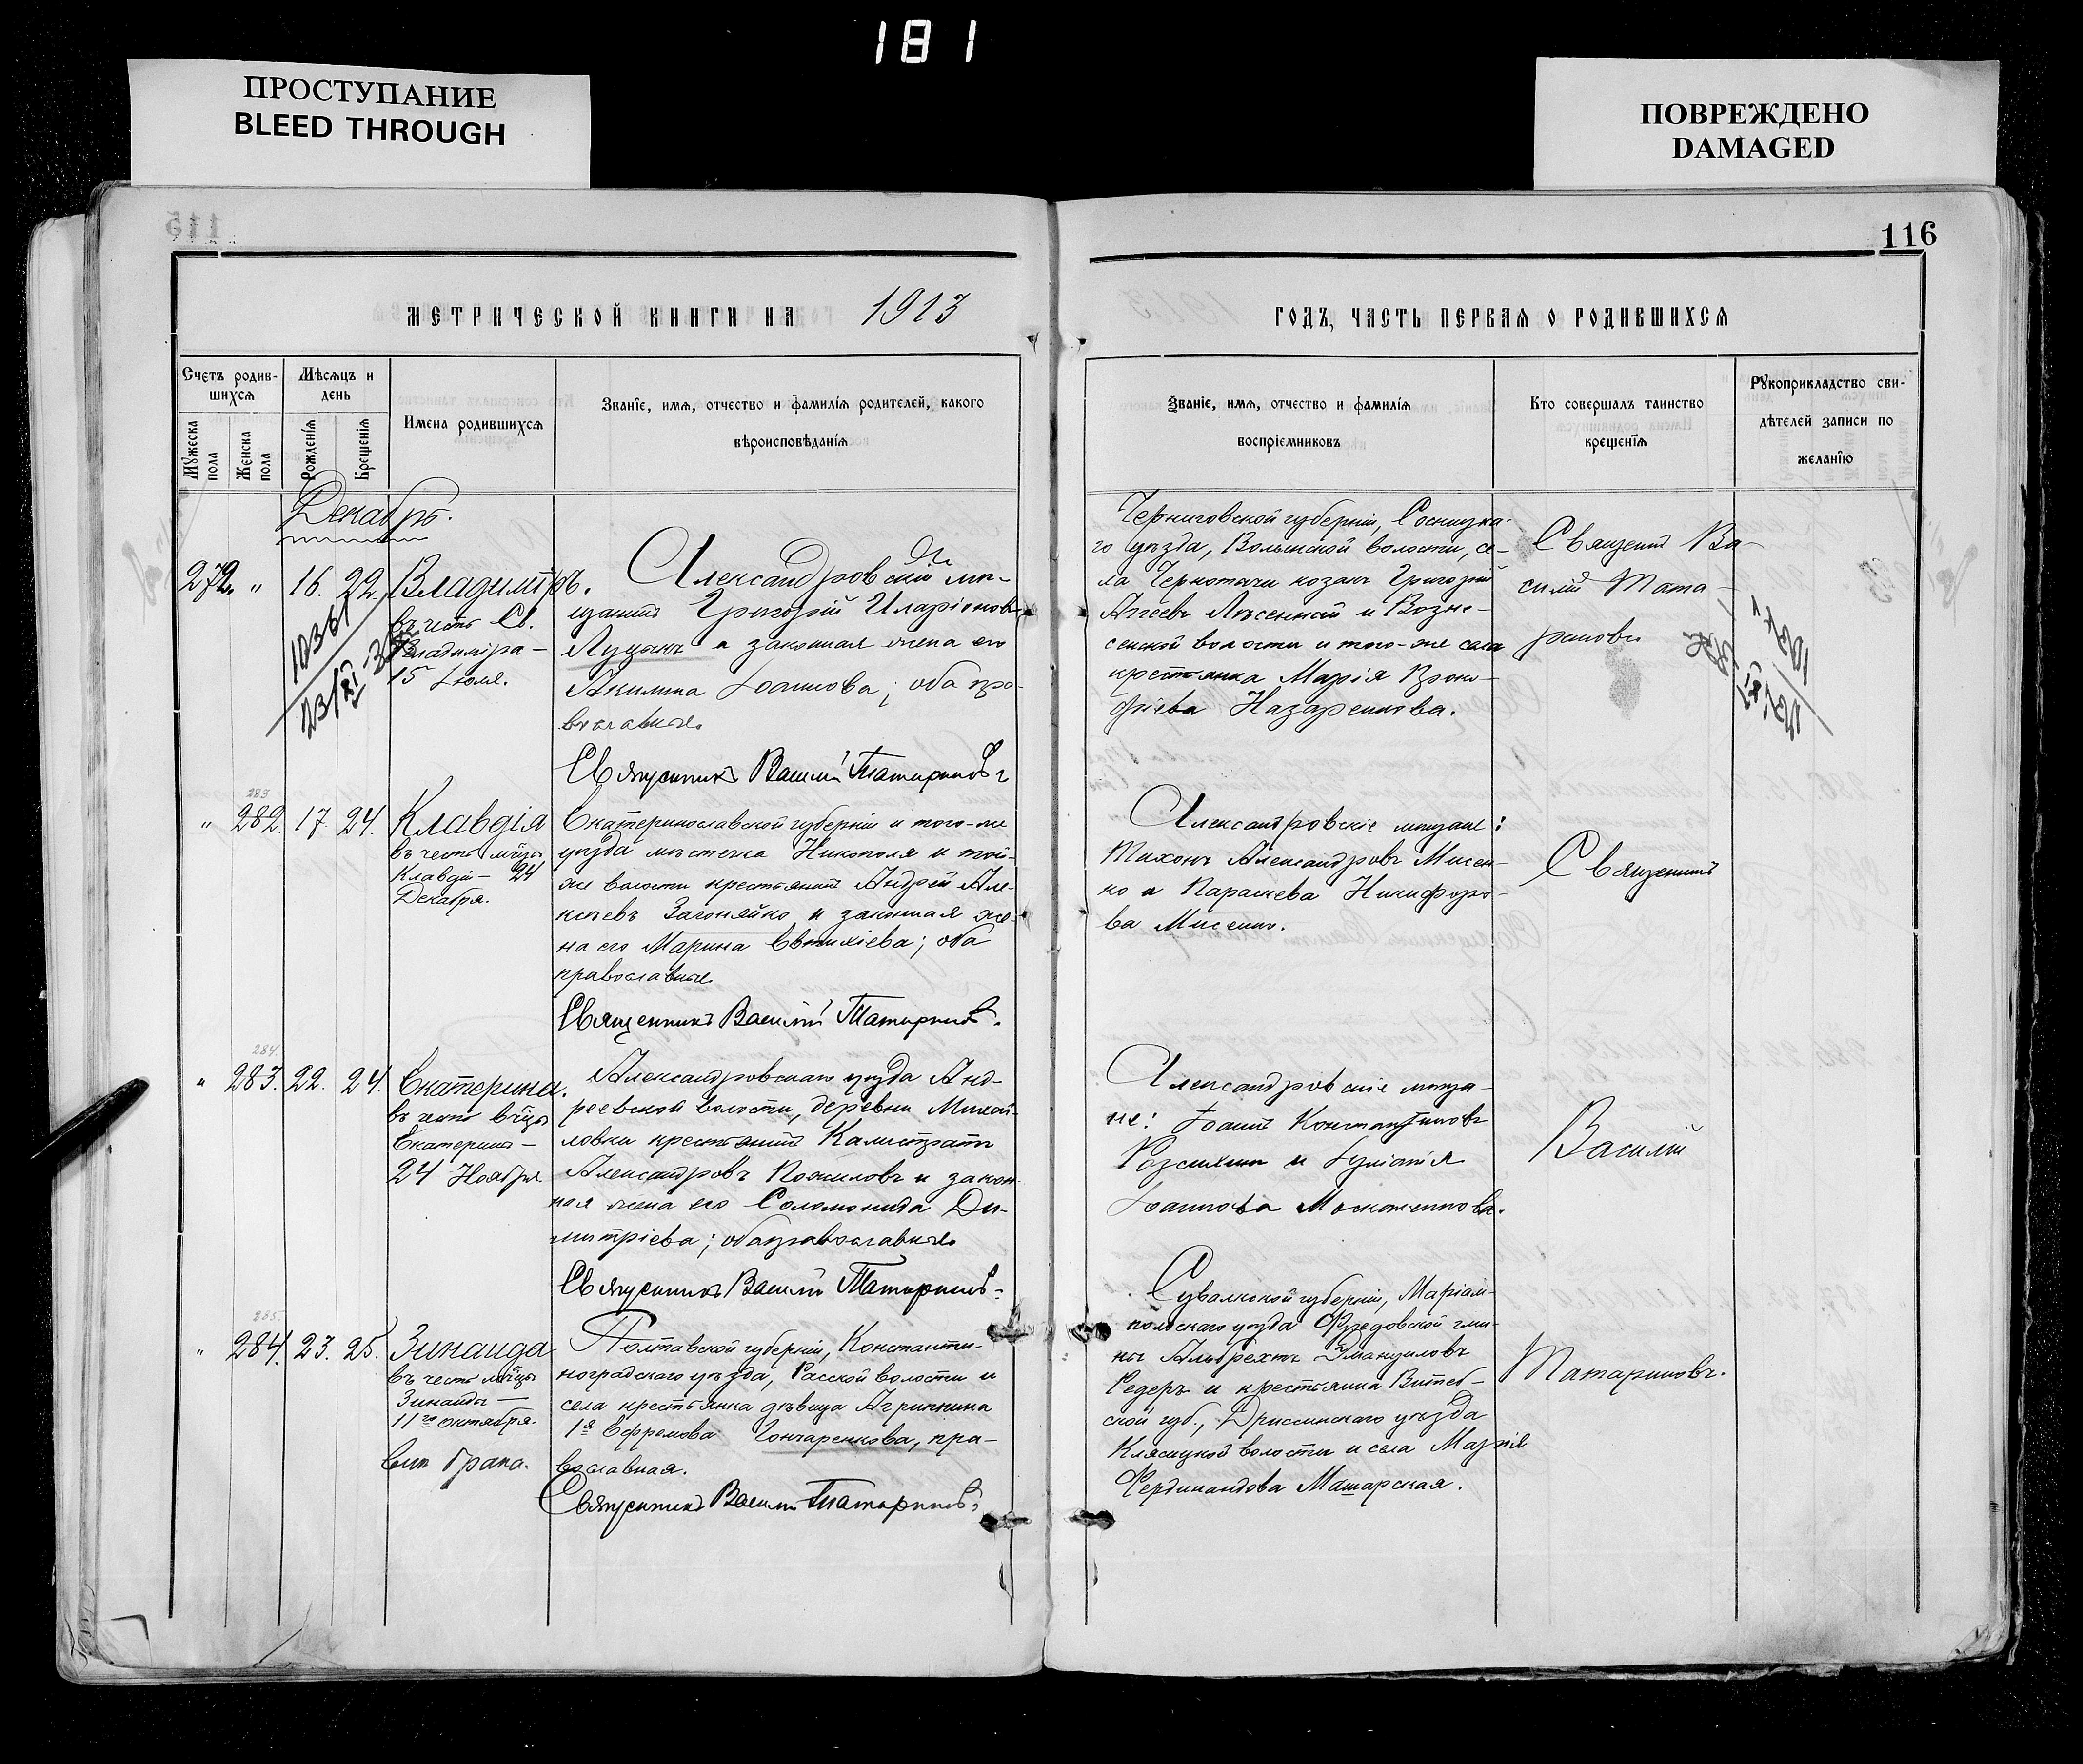 181
ПРОСТУПАНИЕ
BLEED THROUGH
ПОВРЕЖДЕНО
DAMAGED
116
МЕТРИЧЕСКОЙ КНИГИ НА 1913
ГОДЪ, ЧАСТЬ ПЕРВАЯ О РОДИВШИХСЯ
Счетъ родив-
шихся
Мѣсяцъ и
день
Имена родившихся
Званіе, имя, отчество и фамилія родителей, какого
вѣроисповѣданія
Мужеска пола
Женска пола
Рожденія
Крещенія
Званіе, имя, отчество и фамилія
воспріемниковъ
Кто совершалъ таинство
крещенія
Рукоприкладство сви-
дѣтелей записи по
желанію
Декабрь.
272. " 16. 22. Владиміръ.
въ честь Св.
Владиміра –
15 Іюля.
Александровскій мѣ-
щанинъ Григорій Иларіоновъ
Луцыкъ и законная жена его
Акилина Іоаннова; оба пра-
вославные.
Священникъ Василій Татариновъ
Черниговской губерніи, Сосницка-
го уѣзда, Волынской волости, се-
ла Чернотичи козакъ Григорій
Агеевъ и Возне-
сенской волости и того-же села
крестьянка Марія Проко-
фіева Назаренкова.
Священникъ Ва-
силій Тата-
риновъ
283
" 282. 17. 24. Клавдія
въ честь мч҃цы
Клавдіи – 24
Декабря.
Екатеринославской губерніи и того-же
уѣзда мѣстечка Никополя и той-
же волости крестьянинъ Андрей Але-
ксѣевъ Загоняйко и законная же-
на его Марина Евтихіева; оба
православные.
Священникъ Василій Татариновъ.
Александровскіе мѣщане:
Тихонъ Александровъ Мисен-
ко и Параскева Никифоро-
ва Мисенко.
Священникъ
284.
" 283. 22. 24. Екатерина.
въ честь вч҃цы
Екатерины –
24 Ноября.
Александровскаго уѣзда Анд-
реевской волости, деревни Михай-
ловки крестьянинъ Калистратъ
Александровъ Пожиловъ и закон-
ная жена его Соломонида Ди-
митріева; оба православные.
Священникъ Василій Татариновъ.
Александровскіе мѣща-
не: Іоаннъ Константиновъ
и Іуліанія
Іоаннова Москаленкова.
Василій
285.
" 284. 23. 25. Зинаида
въ честь мч҃цы
Зинаиды –
11го октября.
внѣ брака.
Полтавской губерніи, Константи-
ноградскаго уѣзда, Расской волости и
села крестьянка дѣвица Агрипина
1я Ефремова Гончаренкова, пра-
вославная.
Священникъ Василій Татариновъ
Сувалкской губерніи, Маріам-
польскаго уѣзда гми-
ны Альбрехтъ Эмануиловъ
Редеръ и крестьянка Витеб-
ской губ., Дриссинскаго уѣзда
Клясицкой волости и села Марія
Фердинандова Машарская.
Татариновъ.